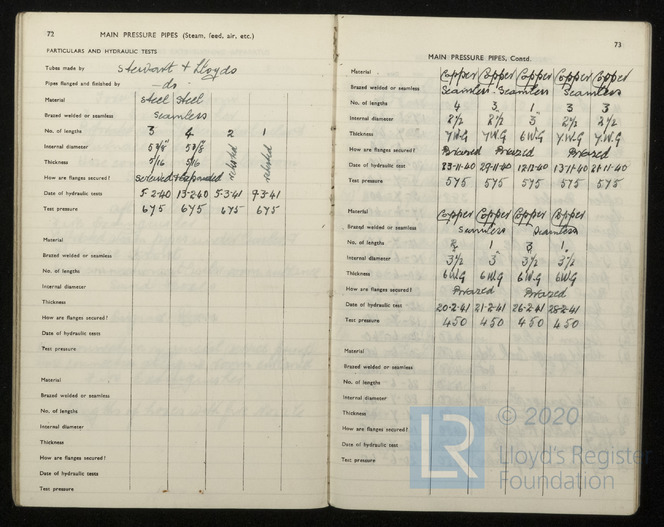 72 MAIN PRESSURE PIPES (Steam, feed, air, etc.)
PARTICULARS AND HYDRAULIC TESTS
Tubes made by Stewarts & Lloyds
Pipes flanged and finished by —do—
Material Steel Steel
Brazed welded or seamless Seamless
No. of lengths 3 4 2 1
Internal diameter 5 3/8" 5 3/8"
Thickness 5/16 5/16
How are flanges secured? screwed & expanded
Date of hydraulic tests 5-2-40 13-2-40 5-3-41 7-3-41
Test pressure 675 675 675 675
Material
Brazed welded or seamless
No. of lengths
Internal diameter
Thickness
How are flanges secured?
Date of hydraulic tests
Test pressure
Material
Brazed welded or seamless
No. of lengths
Internal diameter
Thickness
How are flanges secured?
Date of hydraulic tests
Test pressure
73
MAIN PRESSURE PIPES, Contd.
Material Copper Copper Copper Copper Copper
Brazed welded or seamless Seamless - Seamless Seamless
No. of lengths 4 3 1 3 3
Internal diameter 2 1/2 2 1/2 3 2 1/2 2 1/2
Thickness 7W.G 7W.G 6W.G 7.W.G 7.W.G
How are flanges secured? Brazed Brazed Brazed
Date of hydraulic test 23-11-40 29-11-40 12-11-40 13-11-40 21-11-40
Test pressure 575 575 575 575 575
Material Copper Copper Copper Copper
Brazed welded or seamless Seamless Seamless
No. of lengths 2 1 3 1
Internal diameter 3 1/2 3 3 1/2 3 1/2
Thickness 6W.G 6W.G 6W.G 6W.G
How are flanges secured? Brazed Brazed
Date of hydraulic test 20-2-41 21-2-41 26-2-41 28-2-41
Test pressure 450 450 450 450
Material
Brazed welded or seamless
No. of lengths
Internal diameter
Thickness
How are flanges secured?
Date of hydraulic tests
Test pressure
LR
© 2020
Lloyd's Register
Foundation